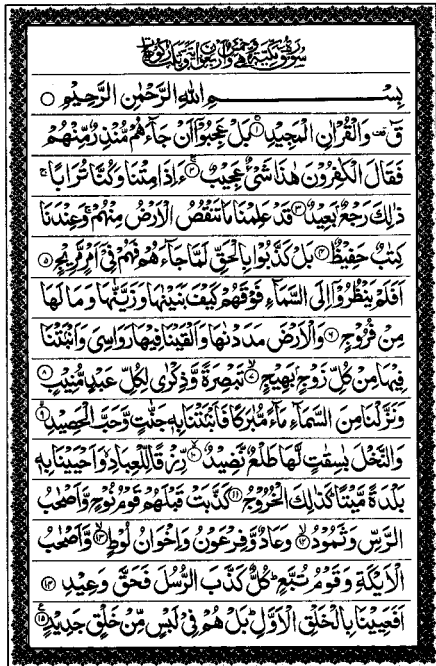 بِسْمِ اللهِ الرَّحْمٰنِ الرَّحِيْمِ ○
قٓ ۚ وَالْقُرْاٰنِ الْمَجِيْدِ ۝۱ بَلْ عَجِبُوْۤا اَنْ جَآءَهُمْ مُّنْذِرٌ مِّنْهُمْ
فَقَالَ الْكٰفِرُوْنَ هٰذَا شَيْءٌ عَجِيْبٌ ۝۲ ءَاِذَا مِتْنَا وَكُنَّا تُرَابًا ۚ
ذٰلِكَ رَجْعٌۢ بَعِيْدٌ ۝۳ قَدْ عَلِمْنَا مَا تَنْقُصُ الْاَرْضُ مِنْهُمْ ۚ وَعِنْدَنَا
كِتٰبٌ حَفِيْظٌ ۝۴ بَلْ كَذَّبُوْا بِالْحَقِّ لَمَّا جَآءَهُمْ فَهُمْ فِيْۤ اَمْرٍ مَّرِيْجٍ ۝۵
اَفَلَمْ يَنْظُرُوْۤا اِلَى السَّمَآءِ فَوْقَهُمْ كَيْفَ بَنَيْنٰهَا وَزَيَّنّٰهَا وَمَا لَهَا
مِنْ فُرُوْجٍ ۝۶ وَالْاَرْضَ مَدَدْنٰهَا وَاَلْقَيْنَا فِيْهَا رَوَاسِيَ وَاَنْۢبَتْنَا
فِيْهَا مِنْ كُلِّ زَوْجٍۢ بَهِيْجٍ ۝۷ تَبْصِرَةً وَّذِكْرٰى لِكُلِّ عَبْدٍ مُّنِيْبٍ ۝۸
وَنَزَّلْنَا مِنَ السَّمَآءِ مَآءً مُّبٰرَكًا فَاَنْۢبَتْنَا بِهٖ جَنّٰتٍ وَّحَبَّ الْحَصِيْدِ ۝۹
وَالنَّخْلَ بٰسِقٰتٍ لَّهَا طَلْعٌ نَّضِيْدٌ ۝۱۰ رِّزْقًا لِّلْعِبَادِ ۙ وَاَحْيَيْنَا بِهٖ
بَلْدَةً مَّيْتًا ؕ كَذٰلِكَ الْخُرُوْجُ ۝۱۱ كَذَّبَتْ قَبْلَهُمْ قَوْمُ نُوْحٍ وَّاَصْحٰبُ
الرَّسِّ وَثَمُوْدُ ۝۱۲ وَعَادٌ وَّفِرْعَوْنُ وَاِخْوَانُ لُوْطٍ ۝۱۳ وَّاَصْحٰبُ
الْاَيْكَةِ وَقَوْمُ تُبَّعٍ ؕ كُلٌّ كَذَّبَ الرُّسُلَ فَحَقَّ وَعِيْدِ ۝۱۴
اَفَعَيِيْنَا بِالْخَلْقِ الْاَوَّلِ ؕ بَلْ هُمْ فِيْ لَبْسٍ مِّنْ خَلْقٍ جَدِيْدٍ ۝۱۵